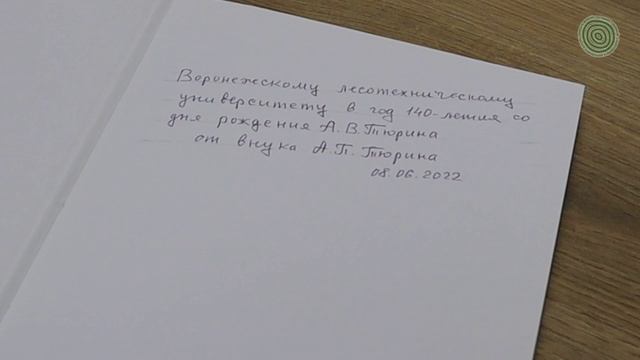 Воронежскому лесотехническому
университету в год 140-летия со
дня рождения А.В.Тюрина
от внука А.П.Тюрина
08.06.2022